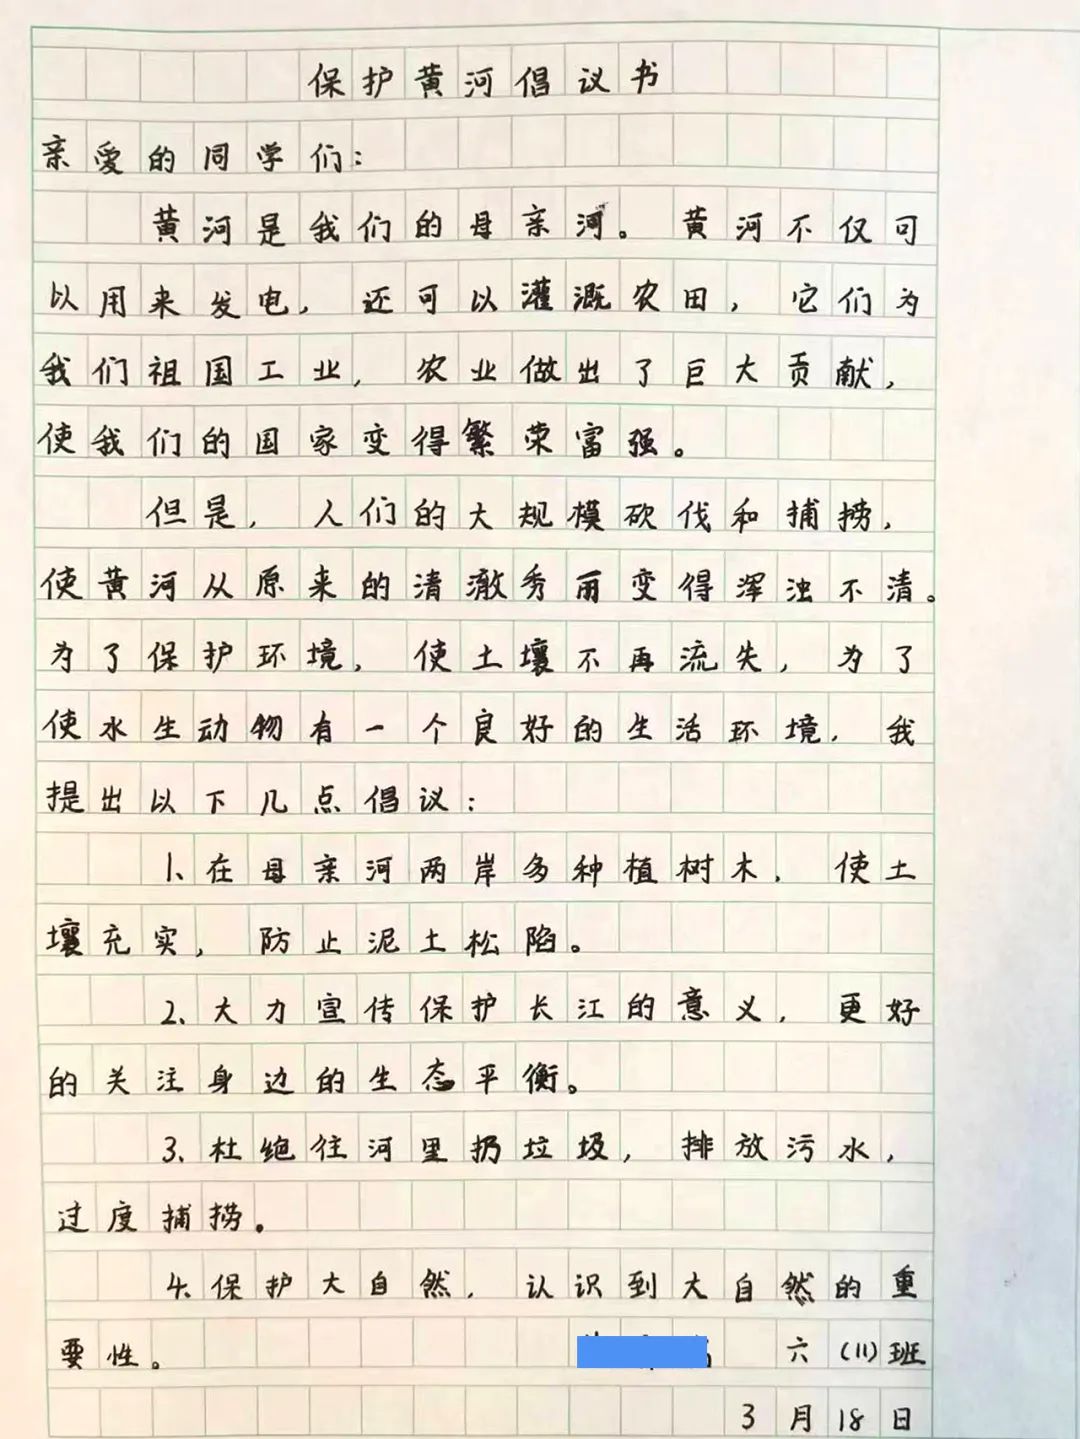 保护黄河倡议书
亲爱的同学们：
黄河是我们的母亲河。黄河不仅可
以用来发电，还可以灌溉农田，它们为
我们祖国工业，农业做出了巨大贡献，
使我们的国家变得繁荣富强。
但是，人们的大规模砍伐和捕捞，
使黄河从原来的清澈秀丽变得浑浊不清。
为了保护环境，使土壤不再流失，为了
使水生动物有一个良好的生活环境，我
提出以下几点倡议：
1、在母亲河两岸多种植树木，使土
壤充实，防止泥土松陷。
2、大力宣传保护长江的意义，更好
的关注身边的生态平衡。
3、杜绝往河里扔垃圾，排放污水，
过度捕捞。
4、保护大自然，认识到大自然的重
要性。 六（11）班
3月18日